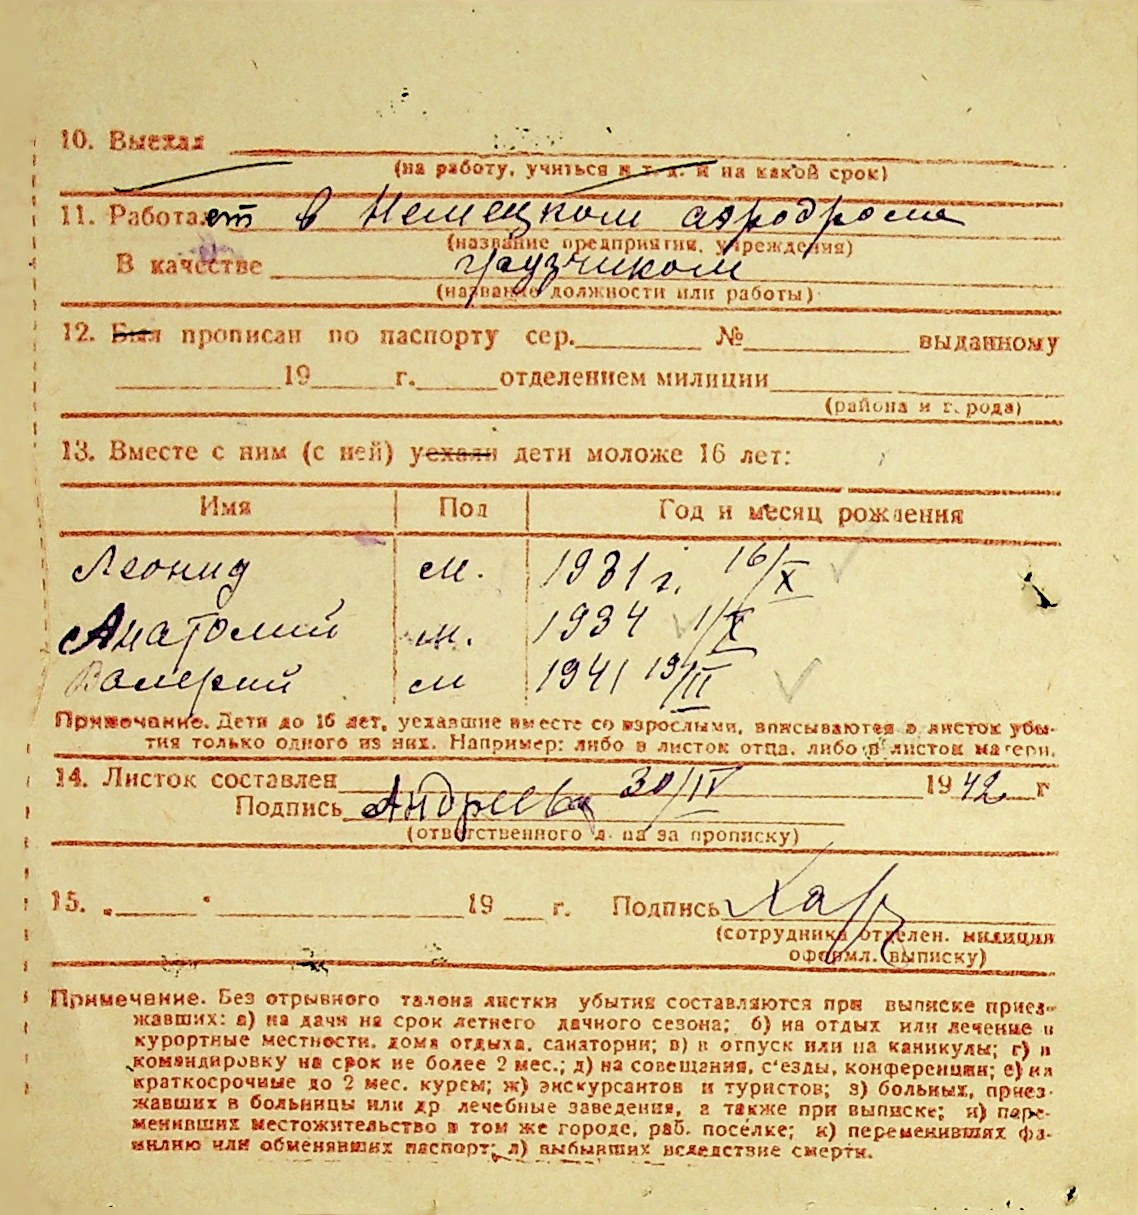 10. Выехал
(на работу, учиться и т. д. и на какой срок)
11. Работает в Немецком аэродроме
(название предприятия, учреждения)
В качестве грузчиком
(название должности или работы)
12. Был прописан по паспорту сер. № выданному
19 г. отделением милиции
(района и города)
13. Вместе с ним (с ней) уехали дети моложе 16 лет:
Имя Пол Год и месяц рождения
Леонид м. 1931 г. 16/X
Анатолий м. 1934 1/X
Валерий м 1941 19/III
Примечание. Дети до 16 лет, уехавшие вместе со взрослыми, вписываются в листок убы-
тия только одного из них. Например: либо в листок отца, либо в листок матери.
14. Листок составлен 30/IV 1942 г
Подпись Андреева
(ответственного л-ца за прописку)
15. „ “ 19 г. Подпись Хар
(сотрудника отделен. милиции
оформл. выписку)
Примечание. Без отрывного талона листки убытия составляются при выписке приез-
жавших: а) на дачи на срок летнего дачного сезона; б) на отдых или лечение в
курортные местности, дома отдыха, санатории; в) в отпуск или на каникулы; г) в
командировку на срок не более 2 мес.; д) на совещания, с'езды, конференции; е) на
краткосрочные до 2 мес. курсы; ж) экскурсантов и туристов; з) больных, приез-
жавших в больницы или др лечебные заведения, а также при выписке; и) пере-
менивших местожительство в том же городе, раб. поселке; к) переменивших фа-
милию или обменявших паспорт; л) выбывших вследствие смерти.